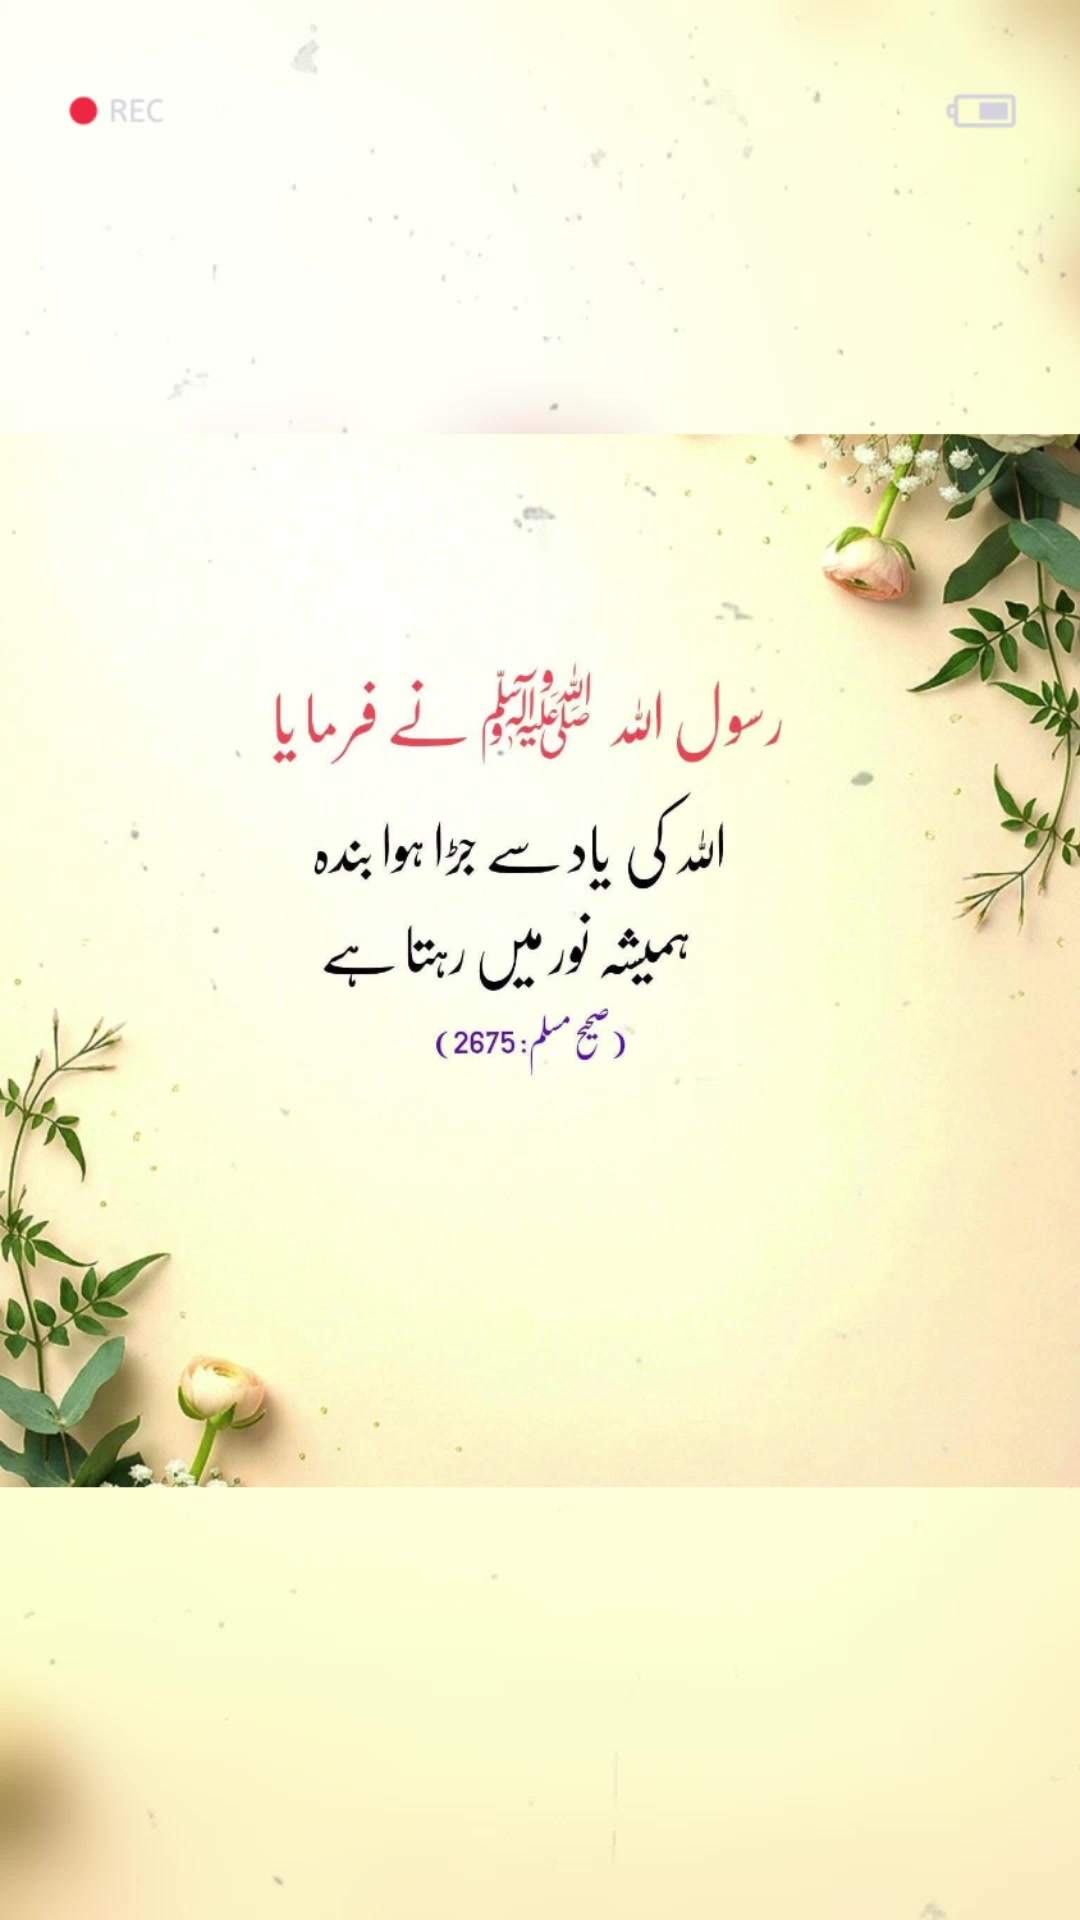 REC
رسول اللہ ﷺ نے فرمایا
اللہ کی یاد سے جڑا ہوا بندہ
ہمیشہ نور میں رہتا ہے
(صحیح مسلم: 2675)